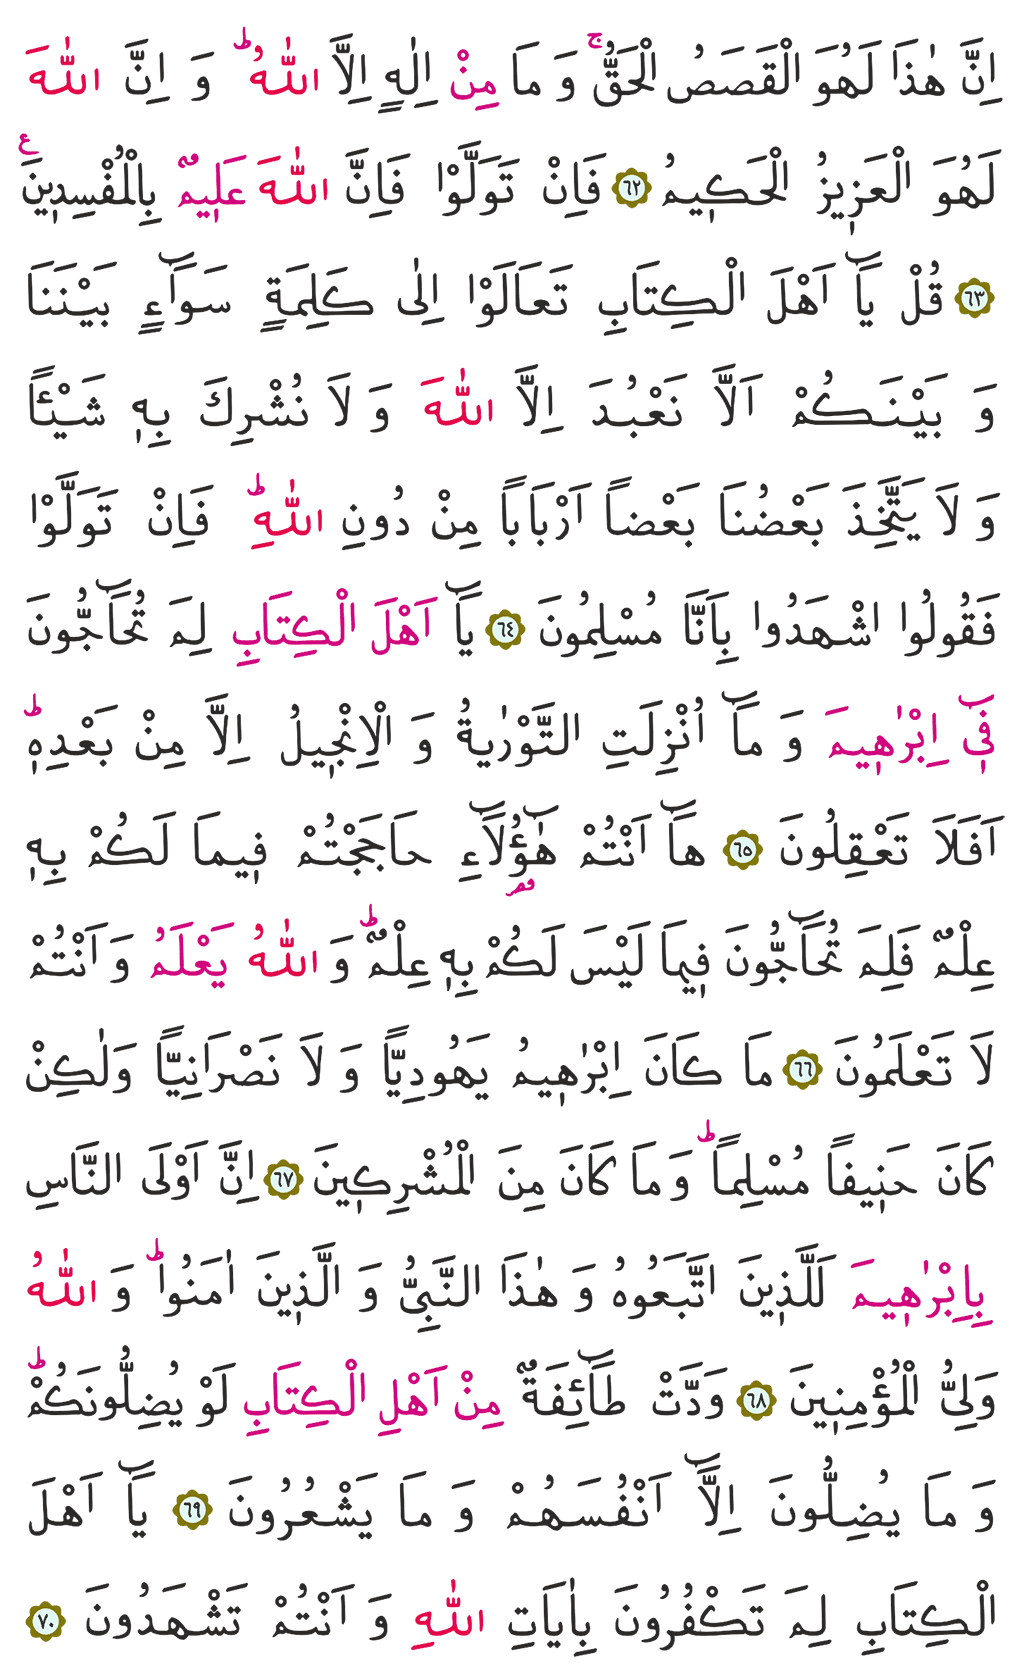 اِنَّ هٰذَا لَهُوَ الْقَصَصُ الْحَقُّۚ وَ مَا مِنْ اِلٰهٍ اِلَّا اللّٰهُؕ وَ اِنَّ اللّٰهَ
لَهُوَ الْعَزٖيزُ الْحَكٖيمُ ﴿٦٢﴾ فَاِنْ تَوَلَّوْا فَاِنَّ اللّٰهَ عَلٖيمٌ بِالْمُفْسِدٖينَ ع
﴿٦٣﴾ قُلْ يَٓا اَهْلَ الْكِتَابِ تَعَالَوْا اِلٰى كَلِمَةٍ سَوَٓاءٍ بَيْنَنَا
وَ بَيْنَكُمْ اَلَّا نَعْبُدَ اِلَّا اللّٰهَ وَ لَا نُشْرِكَ بِهٖ شَيْـًٔا
وَ لَا يَتَّخِذَ بَعْضُنَا بَعْضاً اَرْبَاباً مِنْ دُونِ اللّٰهِؕ فَاِنْ تَوَلَّوْا
فَقُولُوا اشْهَدُوا بِاَنَّا مُسْلِمُونَ ﴿٦٤﴾ يَٓا اَهْلَ الْكِتَابِ لِمَ تُحَٓاجُّونَ
فٖٓى اِبْرٰهٖيمَ وَ مَٓا اُنْزِلَتِ التَّوْرٰيةُ وَ الْاِنْجٖيلُ اِلَّا مِنْ بَعْدِهٖؕ
اَفَلَا تَعْقِلُونَ ﴿٦٥﴾ هَٓا اَنْتُمْ هٰٓؤُ۬لَٓاءِ حَاجَجْتُمْ فٖيمَا لَكُمْ بِهٖ
عِلْمٌ فَلِمَ تُحَٓاجُّونَ فٖيمَا لَيْسَ لَكُمْ بِهٖ عِلْمٌؕ وَ اللّٰهُ يَعْلَمُ وَ اَنْتُمْ
لَا تَعْلَمُونَ ﴿٦٦﴾ مَا كَانَ اِبْرٰهٖيمُ يَهُودِيًّا وَ لَا نَصْرَانِيًّا وَلٰكِنْ
كَانَ حَنٖيفاً مُسْلِماًؕ وَ مَا كَانَ مِنَ الْمُشْرِكٖينَ ﴿٦٧﴾ اِنَّ اَوْلَى النَّاسِ
بِاِبْرٰهٖيمَ لَلَّذٖينَ اتَّبَعُوهُ وَ هٰذَا النَّبِىُّ وَ الَّذٖينَ اٰمَنُواؕ وَ اللّٰهُ
وَلِىُّ الْمُؤْمِنٖينَ ﴿٦٨﴾ وَدَّتْ طَٓائِفَةٌ مِنْ اَهْلِ الْكِتَابِ لَوْ يُضِلُّونَكُمْؕ
وَ مَا يُضِلُّونَ اِلَّٓا اَنْفُسَهُمْ وَ مَا يَشْعُرُونَ ﴿٦٩﴾ يَٓا اَهْلَ
الْكِتَابِ لِمَ تَكْفُرُونَ بِاٰيَاتِ اللّٰهِ وَ اَنْتُمْ تَشْهَدُونَ ﴿٧٠﴾